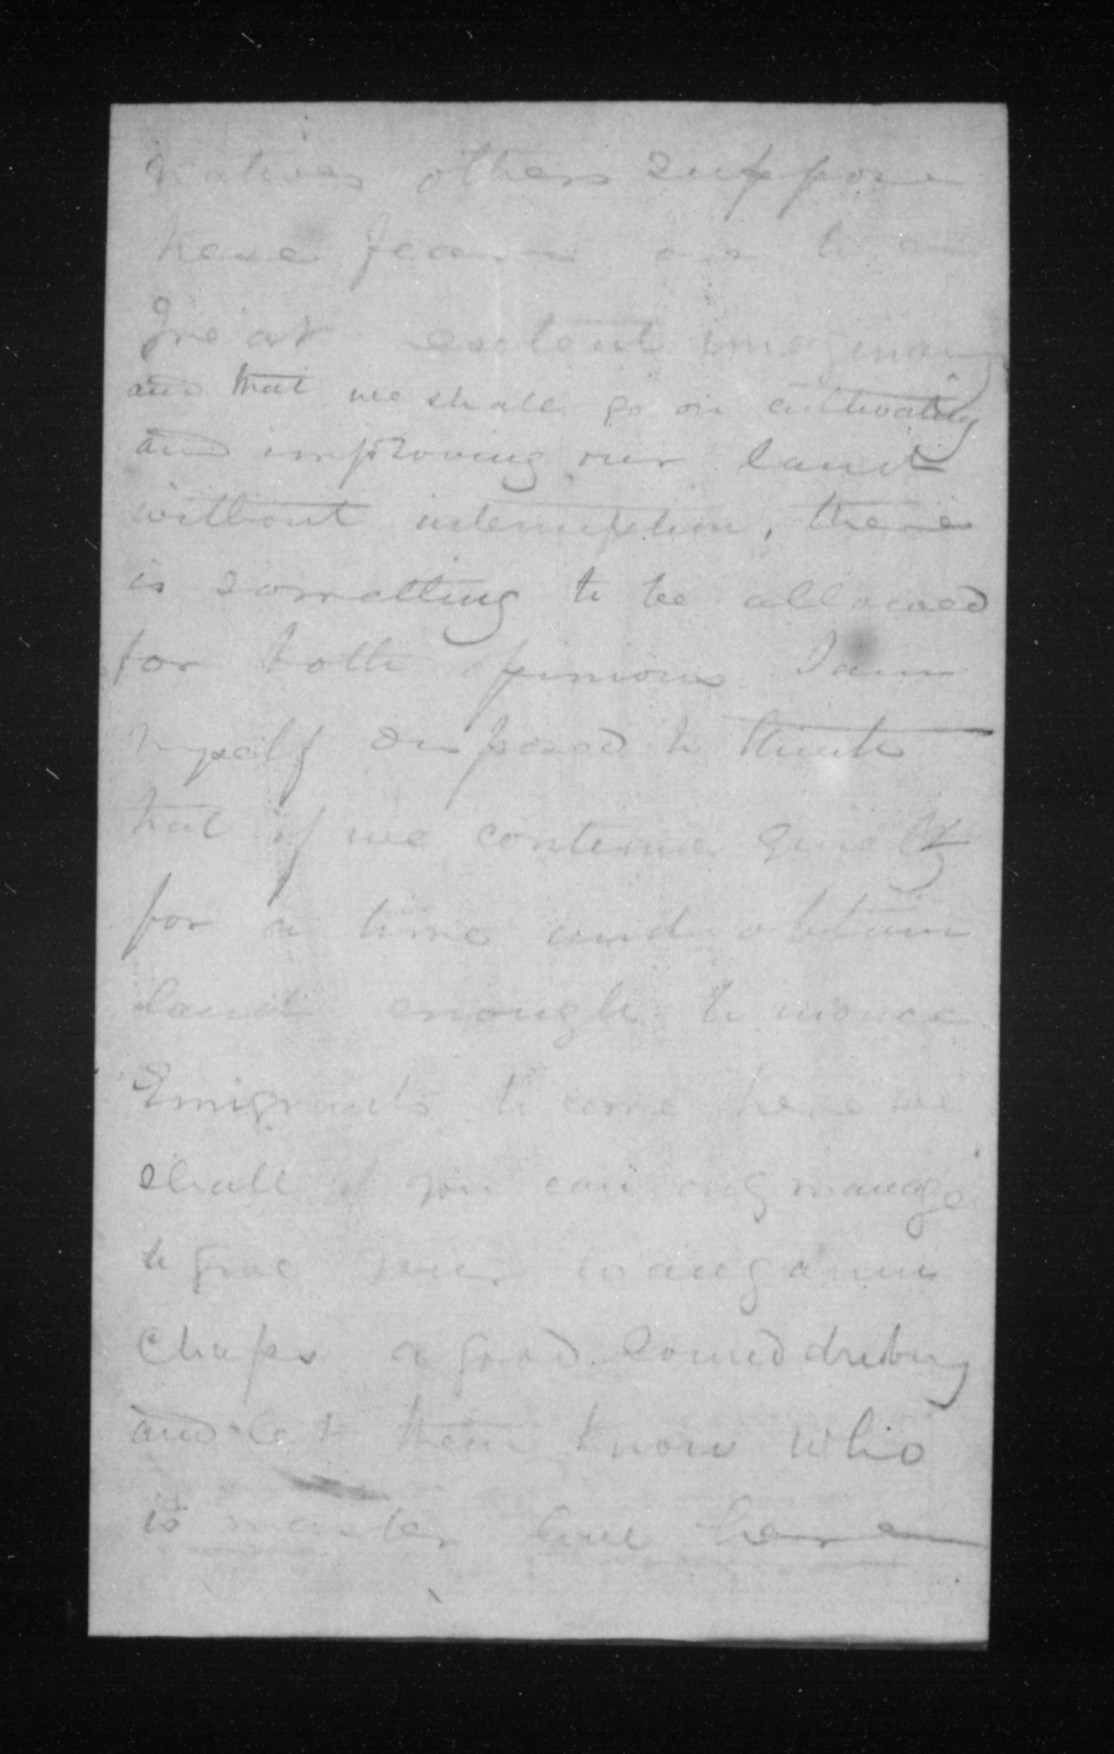 natives others suppose
these fears are to a
great extent imaginary
and that we shall go on cultivating
and improving our land
without interruption, there
is something to be allowed
for both opinions I am
myself disposed to think
that if we continue quietly
for a time and obtain
land enough to induce
Emigrants to come here we
shall if you can only manage
to give your Wanganui
Chaps a good sound drubing
and let them know who
is master